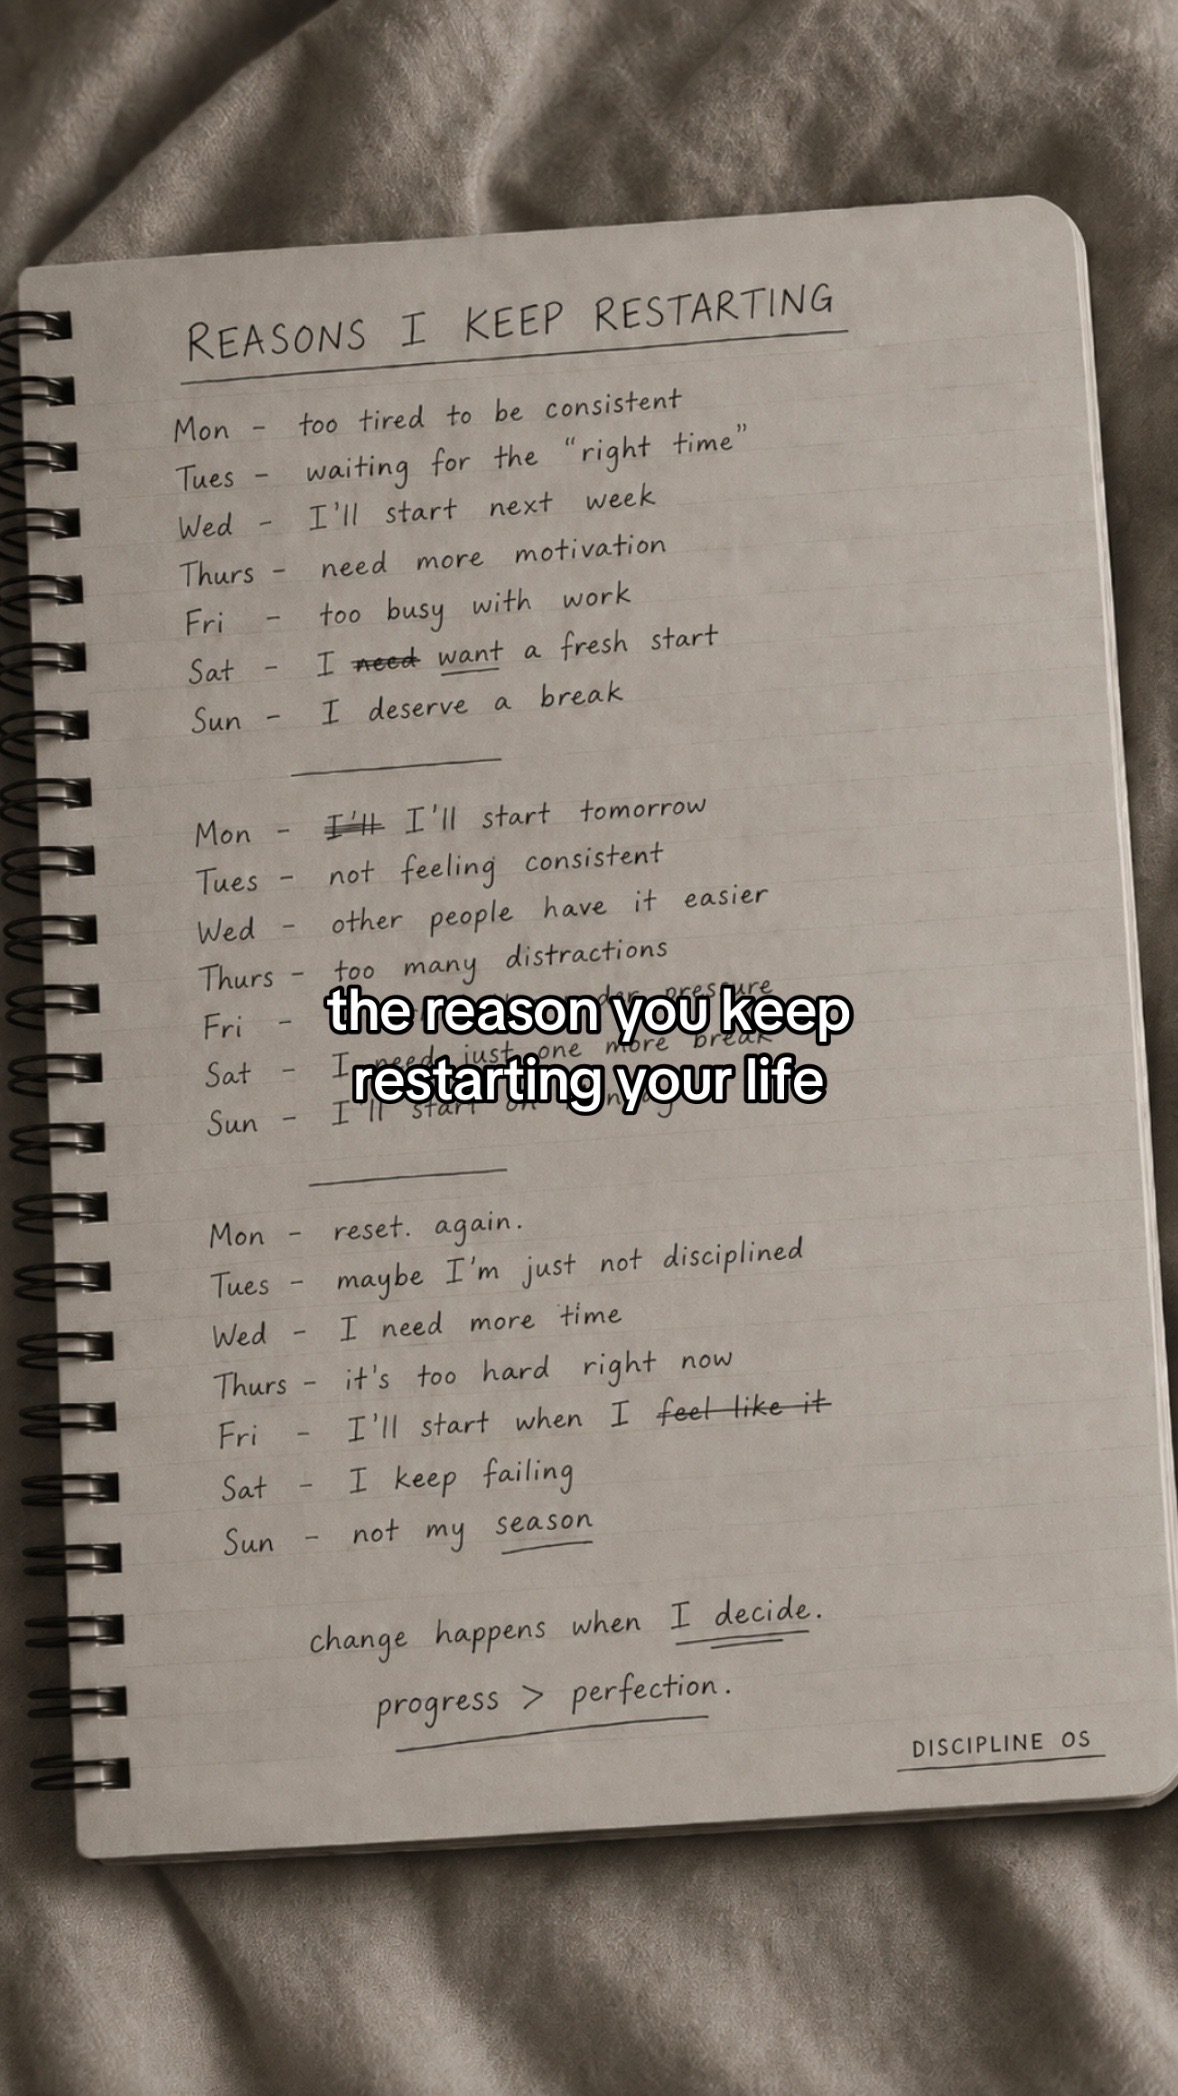 REASONS I KEEP RESTARTING
Mon - too tired to be consistent
Tues - waiting for the "right time"
Wed - I'll start next week
Thurs - need more motivation
Fri - too busy with work
Sat - I need want a fresh start
Sun - I deserve a break
Mon - I'll I'll start tomorrow
Tues - not feeling consistent
Wed - other people have it easier
Thurs - too many distractions
Fri - pressure
the reason you keep
Sat - I need just one more break
restarting your life
Sun - I'll start on
Mon - reset. again.
Tues - maybe I'm just not disciplined
Wed - I need more time
Thurs - it's too hard right now
Fri - I'll start when I feel like it
Sat - I keep failing
Sun - not my season
change happens when I decide.
progress > perfection.
DISCIPLINE OS